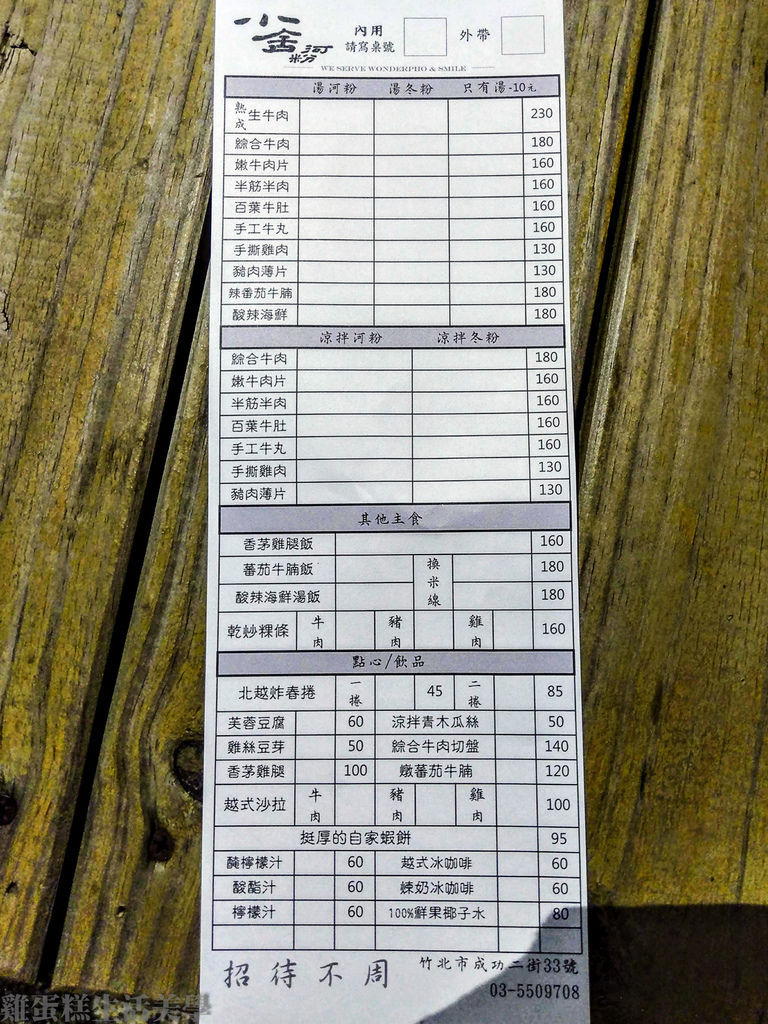 小舍河粉
內用 外帶
請寫桌號
WE SERVE WONDERPHO & SMILE
湯河粉 湯冬粉 只有湯-10元
熟成生牛肉 230
綜合牛肉 180
嫩牛肉片 160
半筋半肉 160
百葉牛肚 160
手工牛丸 160
手撕雞肉 130
豬肉薄片 130
辣番茄牛腩 180
酸辣海鮮 180
涼拌河粉 涼拌冬粉
綜合牛肉 180
嫩牛肉片 160
半筋半肉 160
百葉牛肚 160
手工牛丸 160
手撕雞肉 130
豬肉薄片 130
其他主食
香茅雞腿飯 160
蕃茄牛腩飯 換米線 180
酸辣海鮮湯飯 180
乾炒粿條 牛肉 豬肉 雞肉 160
點心/飲品
北越炸春捲 一捲 45 二捲 85
芙蓉豆腐 60 涼拌青木瓜絲 50
雞絲豆芽 50 綜合牛肉切盤 140
香茅雞腿 100 燉蕃茄牛腩 120
越式沙拉 牛肉 豬肉 雞肉 100
挺厚的自家蝦餅 95
醃檸檬汁 60 越式冰咖啡 60
酸酯汁 60 煉奶冰咖啡 60
檸檬汁 60 100%鮮果椰子水 80
招待不周
竹北市成功二街33號
03-5509708
雞蛋糕生活美學